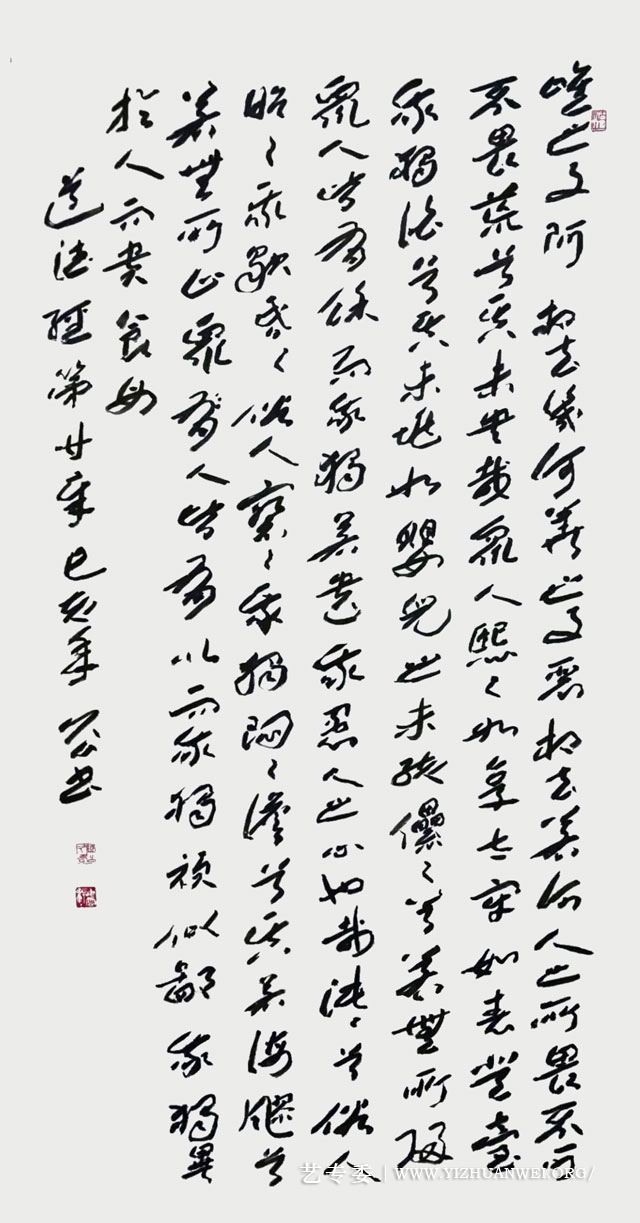 唯之与阿相去幾何美之与惡相去若何人之所畏不可
不畏荒兮其未央哉眾人熙〻如享太牢如春登臺
我獨泊兮其未兆如嬰兒之未孩儽〻兮若無所歸
眾人皆有餘而我獨若遺我愚人之心也哉沌〻兮俗人
昭〻我獨昏〻俗人察〻我獨悶〻澹兮其若海飂兮
若無所止眾人皆有以而我獨頑似鄙我獨異
於人而貴食母
道德經第廿章己亥年公书
艺专委 | WWW.YIZHUANWEI.ORG/